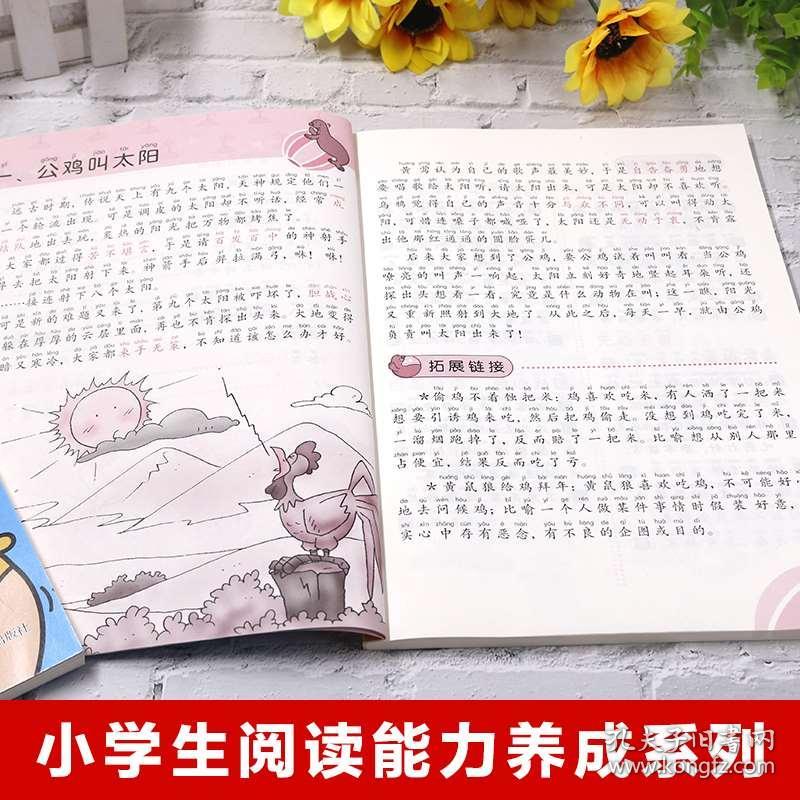 一、公鸡叫太阳
远古时期,传说天上有九个太阳,天神规定他们一
二个轮流出现。可是调皮的太阳却不听话,经常
队地出去玩,炙热的阳光把万物都烤焦了。
大家都过得苦不堪言,于是请百发百中的神射手
去把太阳射下来。神箭手后羿拉满弓,咻!咻!
接连射下八个太阳。
可是新的难题又来了,第九个太阳被吓坏了,胆战心
躲在厚厚的云层里面,再也不肯探出头来。大地变得
暗又寒冷,大家都束手无策,不知道该怎么办才好。
黄莺认为自己的歌声最美妙,于是自告奋勇地想
要唱歌给太阳听,请太阳出来,可是太阳却不喜欢听。
乌鸦觉得自己的声音十分与众不同,可以叫得动太
阳,可惜连嗓子都喊哑了,太阳还是无动于衷,不肯露
出他那红通通的圆脸蛋儿。
后来大家想到了公鸡,要公鸡试着叫叫看。当公鸡
嘹亮的叫声一响起,太阳立刻好奇地竖起耳朵听,还
探出头想看一看,究竟是什么动物在叫;这一瞧,阳光
又重新照射到大地了。从此之后,每天一早,就由公鸡
负责叫太阳出来了!
拓展链接
*偷鸡不着蚀把米:鸡喜欢吃米,有人洒了一把米
想要引诱鸡来吃,然后把鸡偷走。没想到鸡吃完了米,
一溜烟跑掉了,反而赔了一把米。比喻想从别人那里
占便宜,结果反而吃了亏。
*黄鼠狼给鸡拜年:黄鼠狼喜欢吃鸡,不可能好心
地去问候鸡;比喻一个人做某件事情时假装好意,其
实心中存有恶念,有不良的企图或目的。
版社
小学生阅读能力养成系列
孔夫子旧书网
www.kongfz.com